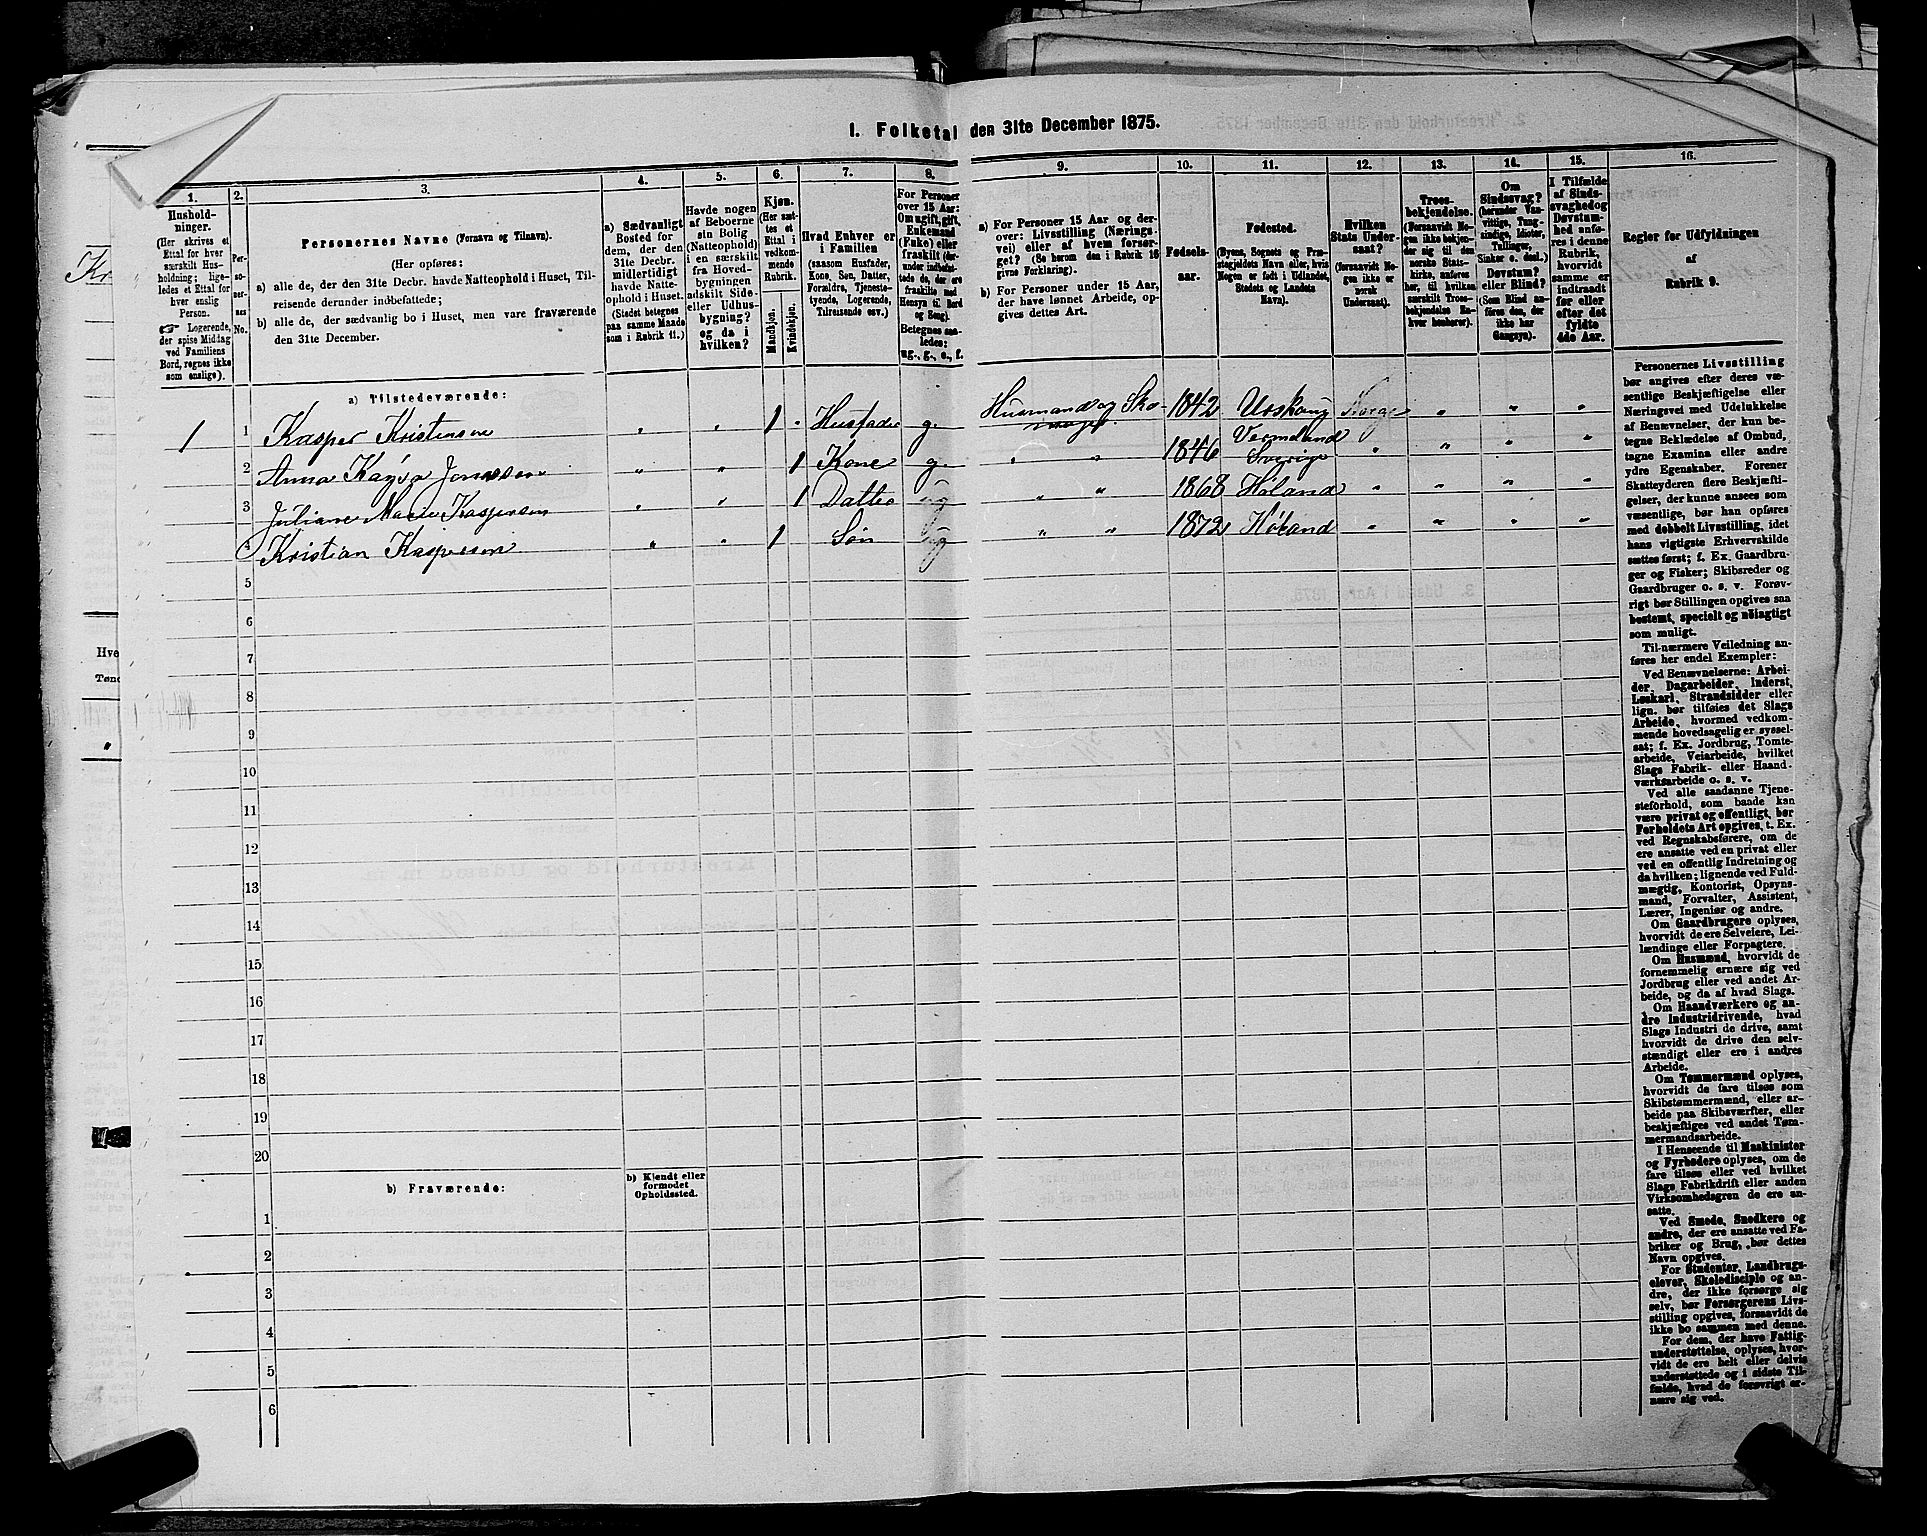 1. Folketal den 31te December 1875.
1.
2.
3.
4.
5.
6.
7.
8.
9.
10.
11.
12.
13.
14.
15.
16.
Hushold-
ninger.
(Her skrives et
Ettal for hver
særskilt Hus-
holdning; lige-
ledes et Ettal for
hver enslig
Person.
☞ Logerende,
der spise Middag
ved Familiens
Bord, regnes ikke
som enslige).
Per-
so-
ner-
nes
No.
Personernes Navne (Fornavn og Tilnavn).
(Her opføres:
a) alle de, der den 31te Decbr. havde Natteophold i Huset, Til-
reisende derunder indbefattede;
b) alle de, der sædvanlig bo i Huset, men vare fraværende
den 31te December.
a) Sædvanligt
Bosted for
dem, der den
31te Decbr.
midlertidigt
havde Natte-
ophold i Huset.
(Stedet betegnes
paa samme Maade
som i Rubrik 11.)
Havde nogen
af Beboerne
sin Bolig
(Natteophold)
i en særskilt
fra Hoved-
bygningen
adskilt Side-
eller Udhus-
bygning?
og da i
hvilken?
Kjøn.
(Her sæt-
tes et
Ettal i
vedkom-
mende
Rubrik.
Mandkjøn.
Kvindekjøn.
Hvad Enhver er
i Familien
(saasom Husfader,
Kone, Søn, Datter,
Forældre, Tjeneste-
tyende, Logerende,
Tilreisende osv.)
For Personer
over 15 Aar:
Om ugift, gift,
Enkemand
(Enke) eller
fraskilt (der-
under indbefat-
tede de, der ere
fraskilte med
Hensyn til Bord
og Seng).
Betegnes saa-
ledes:
ug., g., e., f.
a) For Personer 15 Aar og der-
over: Livsstilling (Nærings-
vei) eller af hvem forsør-
get? (Se herom den i Rubrik 16
givne Forklaring).
b) For Personer under 15 Aar,
der have lønnet Arbeide, op-
gives dettes Art.
Fødsels-
aar.
Fødested.
(Byens, Sognets og Præ-
stegjeldets Navn eller, hvis
Nogen er født i Udlandet,
Stedets og Landets
Navn).
Hvilken
Stats Under-
saat?
(forsaavidt No-
gen ikke er
norsk
Undersaat).
Troes-
bekjendelse.
(Forsaavidt No-
gen ikke bekjen-
der sig til den
norske Stats-
kirke, anføres
her, til hvilken
særskilt Troes-
bekjendelse En-
hver henhører).
Om
Sindssvag?
(herunder Van-
vittige, Tung-
sindige, Idioter,
Tullinger,
Sinker o. desl.)
Døvstum?
eller Blind?
(Som Blind an-
føres den, der
ikke har
Gangsyn).
I Tilfælde
af Sinds-
svaghed og
Døvstum-
hed anfø-
res i denne
Rubrik,
hvorvidt
samme er
indtraadt
før eller
efter det
fyldte
4de Aar.
Regler for Udfyldningen
af
Rubrik 9.
a) Tilstedeværende:
1 1 Kasper Kristensen " " 1 " Husfader g. Husmand og Sko-
mager. 1842 Urskoug Norge " " "
2 Anna Kaysa Jonassen " " 1 Kone g. " " 1846 Vermland
Sverige " " " "
3 Juliane Marie Kaspersen " " 1 Datter ug " " 1868 Høland " " " "
4 Kristian Kaspersen " " 1 Søn ug " " 1872 Høland " " " "
5
6
7
8
9
10
11
12
13
14
15
16
17
18
19
20
b) Fraværende:
b) Kjendt eller
formodet
Opholdssted.
1
2
3
4
5
6
Personernes Livsstilling
bør angives efter deres væ-
sentlige Beskjæftigelse eller
Næringsvei med Udelukkelse
af Benævnelser, der kun be-
tegne Beklædelse af Ombud,
tagne Examina eller andre
ydre Egenskaber. Forener
Skatteyderen flere Beskjæfti-
gelser, der kunne ansees som
væsentlige, bør han opføres
med dobbelt Livsstilling, idet
hans vigtigste Erhvervskilde
sættes først; f. Ex. Gaardbru-
ger og Fisker; Skibsreder og
Gaardbruger o. s. v. Forøv-
rigt bør Stillingen opgives saa
bestemt, specielt og nøiagtigt
som muligt.
Til nærmere Veiledning an-
føres her endel Exempler:
Ved Benævnelserne: Arbei-
der, Dagarbeider, Inderst,
Løskarl, Strandsidder eller
lign. bør tilføies det Slags
Arbeide, hvormed vedkom-
mende hovedsagelig er syssel-
sat; f. Ex. Jordbrug, Tomte-
arbeide, Veiarbeide, hvilket
Slags Fabrik- eller Haand-
værksarbeide o. s. v.
Ved alle saadanne Tjene-
steforhold, som baade kan
være privat og offentligt, bør
Forholdets Art opgives, t. Ex.
ved Regnskabsførere, om de
ere ansatte ved en privat eller
ved en offentlig Indretning og
da hvilken; lignende ved Fuld-
mægtig, Kontorist, Opsyns-
mand, Forvalter, Assistent,
Lærer, Ingeniør og andre.
Om Gaardbrugere oplyses,
hvorvidt de ere Selveiere, Lei-
lændinge eller Forpagtere.
Om Husmænd, hvorvidt de
fornemmelig ernære sig ved
Jordbrug eller ved andet Ar-
beide, og da af hvad Slags.
Om Haandværkere og an-
dre Industridrivende, hvad
Slags Industri de drive, samt
hvorvidt de drive den selv-
stændigt eller ere i andres
Arbeide.
Om Tømmermænd oplyses,
hvorvidt de fare tilsøs som
Skibstømmermænd, eller ar-
beide paa Skibsværfter, eller
beskjæftiges ved andet Tøm-
mermandsarbeide.
I Henseende til Maskinister
og Fyrbødere oplyses, om de
fare tilsøs eller ved hvilket
Slags Fabrikdrift eller anden
Virksomhedsgren de ere an-
satte.
Ved Smede, Snedkere og
andre, der ere ansatte ved Fa-
briker og Brug, bør dettes
Navn opgives.
For Studenter, Landbrugs-
elever, Skoledisciple og an-
dre, der ikke forsørge sig
selv, bør Forsørgerens Livs-
stilling opgives, forsaavidt de
ikke bo sammen med denne.
For dem, der have Fattig-
understøttelse, oplyses, hvor-
vidt de ere helt eller delvis
understøttede og i sidste Til-
fælde, hvad de forøvrigt er-
nære sig ved.